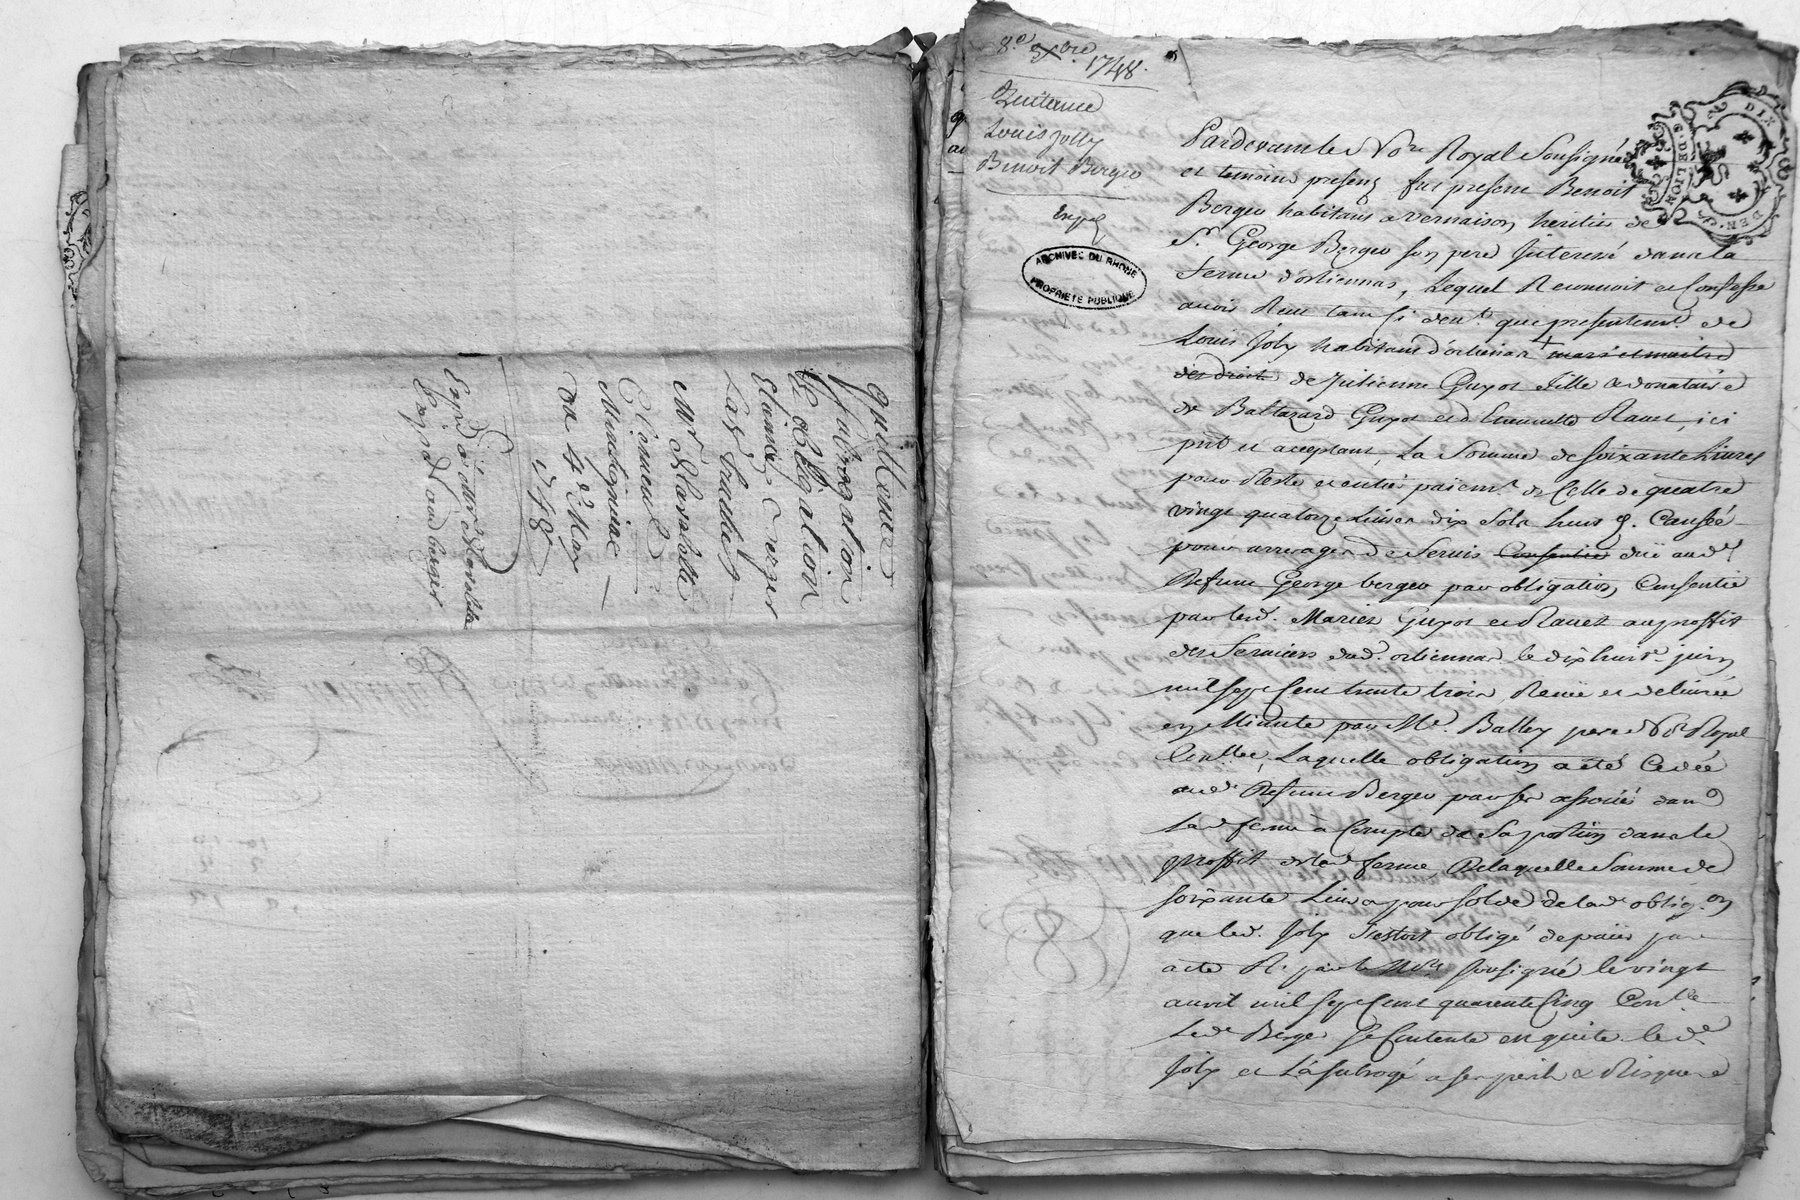 quittance
subrogation
et obligation
etienne Berger
Mr Flavalette
du 4e May
1748
8e xbre 1748.
Quittance
Louis Jolly
Benoit Berger
Exped
ARCHIVES DU RHONE
PROPRIETE PUBLIQUE
G. DE LION
DIX DEN.
Pardevant le Nore Royal Soussigné
et temoins presens fut present Benoit
Berger habitant a vernaison heritier de
Sr. George Berger son pere Interessé dans la
ferme d'orliennas, Lequel Reconnoit et Confesse
avoir Receu tant cy devt. que presentemt. de
Louis Joly habitant d'orlienas + mari et maitre
des droits de Julienne Guyot fille et donataire
de Baltazard Guyot et d'Etiennette Ravet, ici
pnt et acceptant, La Somme de soixante Livres
pour Reste et entier païemt. de Celle de quatre
vingt quatorze Livres dix Sols huit d. Causée
pour arrerages de Servis Consentie düe aud.
Defunt George berger par obligation Consentie
par lesd. Mariez Guyot et Ravet au proffit
des fermiers dud. orliennas le dix huit. juin
mil sept Cent trente trois, Receüe et delivrée
en Minute par Me. Balley pere Nre Royal
Con.lée, Laquelle obligation a été Cedée
aud. Defunt Berger par ses associés dans
Lad. ferme a Compte de Sa portion dans le
proffit de lad. ferme, De laquelle Somme de
soixante Livres pour solde de lad. oblig.on
que led. Joly s'estoit obligé de païer par
acte R. par le Nre soussigné le vingt
avril mil sept Cent quarente Cinq Con.lle
Led. Berger se Contente en quitte led.
Joly et L'a subrogé a ses perils & Risques